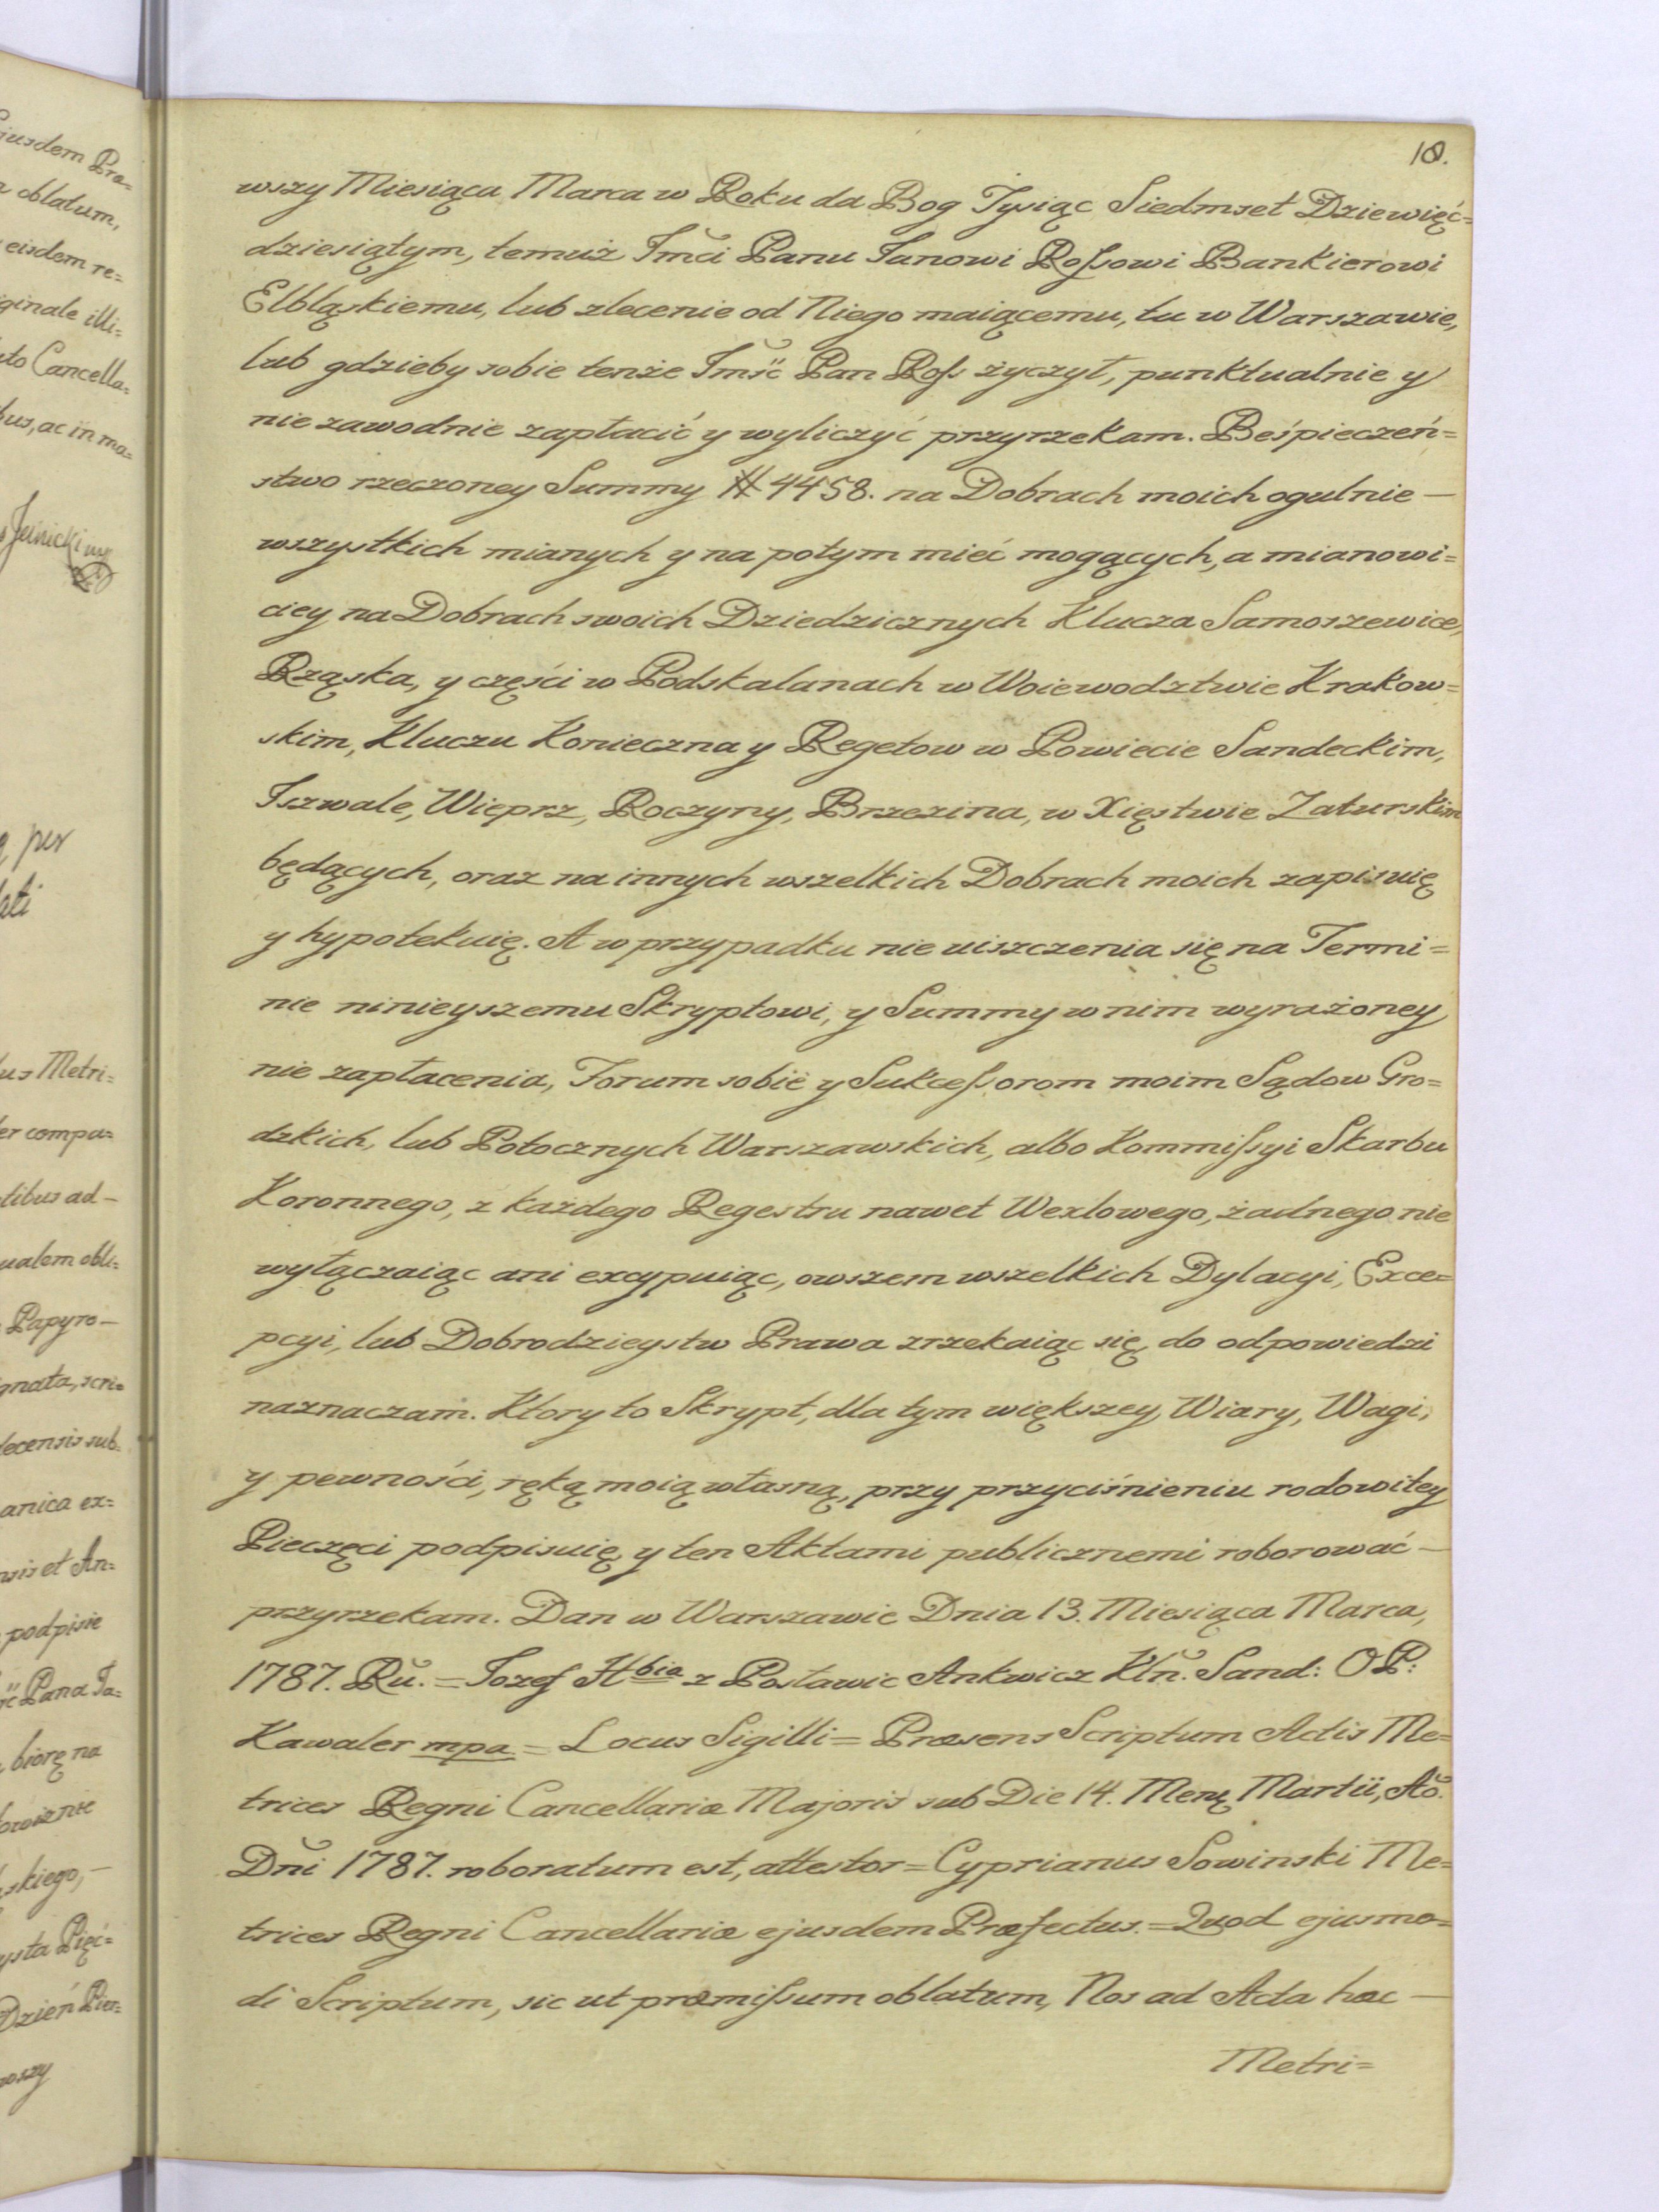 10.
wszy Miesiąca Marca w Roku da Bog Tysiąc Siedmset Dziewięć=
dziesiątym, temuż Jmci Panu Janowi Roſsowi Bankierowi
Elbląskiemu, lub zlecenie od Niego maiącemu, tu w Warszawie,
lub gdzieby sobie tenże Jmść Pan Roſs życzył, punktualnie y
niezawodnie zapłacić y wyliczyć przyrzekam. Beśpieczeń=
stwo rzeczoney Summy # 4458. na Dobrach moich ogulnie —
wszystkich mianych y na potym mieć mogących, a mianowi=
ciey na Dobrach swoich Dziedzicznych Klucza Samoszewice,
Rząska, y części w Podskalanach w Woiewodztwie Krakow=
skim, Kluczu Konieczna y Regetow w Powiecie Sandeckim,
Jszwale, Wieprz, Roczyny, Brzezina, w Xięstwie Zaturskim
będących, oraz na innych wszelkich Dobrach moich zapisuię
y hypotekuię. A w przypadku nie uiszczenia się na Termi=
nie ninieyszemu Skryptowi, y Summy w nim wyrażoney
nie zapłacenia, Forum sobie y Sukceſsorom moim Sądow Gro=
dzkich, lub Potocznych Warszawskich, albo Kommiſsyi Skarbu
Koronnego, z każdego Regestru nawet Wexlowego, żadnego nie
wyłączaiąc ani excypuiąc, owszem wszelkich Dylacyi, Exce=
pcyi, lub Dobrodzieystw Prawa zrzekaiąc się, do odpowiedzi
naznaczam. Ktory to Skrypt, dla tym większey Wiary, Wagi,
y pewności, ręką moią własną, przy przyciśnieniu rodowitey
Pieczęci podpisuię, y ten Aktami publicznemi roborować —
przyrzekam. Dan w Warszawie Dnia 13. Miesiąca Marca,
1787. Ru. = Jozef Hbia z Postawic Ankwicz Kln. Sand: OP:
Kawaler mpa = Locus Sigilli = Præsens Scriptum Actis Me=
trices Regni Cancellariæ Majoris sub Die 14. Mens Martii, Ao.
Dni 1787. roboratum est, attestor = Cyprianus Sowinski Me=
trices Regni Cancellariæ ejusdem Præfectus. = Quod ejusmo=
di Scriptum, sic ut præmiſsum oblatum, Nos ad Acta hæc —
Metri=